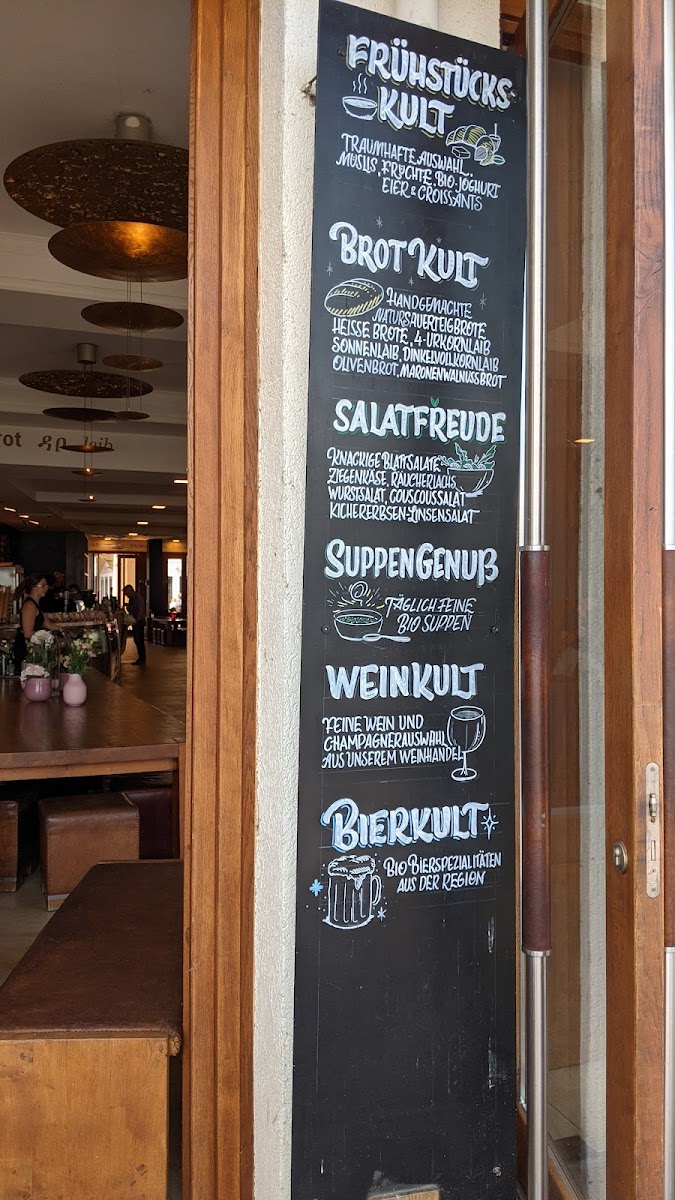 FRÜHSTÜCKS
KULT
TRAUMHAFTE AUSWAHL,
MÜSLIS, FRÜCHTE, BIO-JOGHURT
EIER & CROISSANTS
BROT KULT
HANDGEMACHTE
NATURSAUERTEIGBROTE
HEISSE BROTE, 4-URKORNLAIB
SONNENLAIB, DINKELVOLLKORNLAIB
OLIVENBROT, MARONENWALNUSSBROT
SALATFREUDE
KNACKIGE BLATTSALATE
ZIEGENKÄSE, RÄUCHERLACHS
WURSTSALAT, COUSCOUSSALAT
KICHERERBSEN-LINSENSALAT
SUPPENGENUß
TÄGLICH FEINE
BIO SUPPEN
WEINKULT
FEINE WEIN UND
CHAMPAGNERAUSWAHL
AUS UNSEREM WEINHANDEL
BIERKULT
BIO BIERSPEZIALITÄTEN
AUS DER REGION
rot